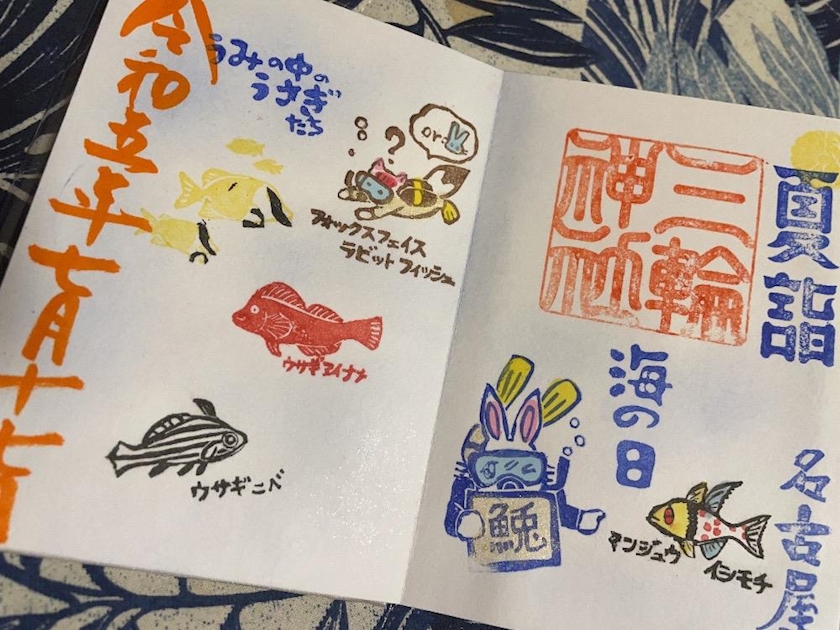 夏詣
三輪
神社
海の
日
名古屋
マンジュウ
イシモチ
or
?
うみの中の
うさぎ
たち
フォックスフェイス
ラビットフィッシュ
ウサギアイナメ
ウサギニベ
令和五年七月十七